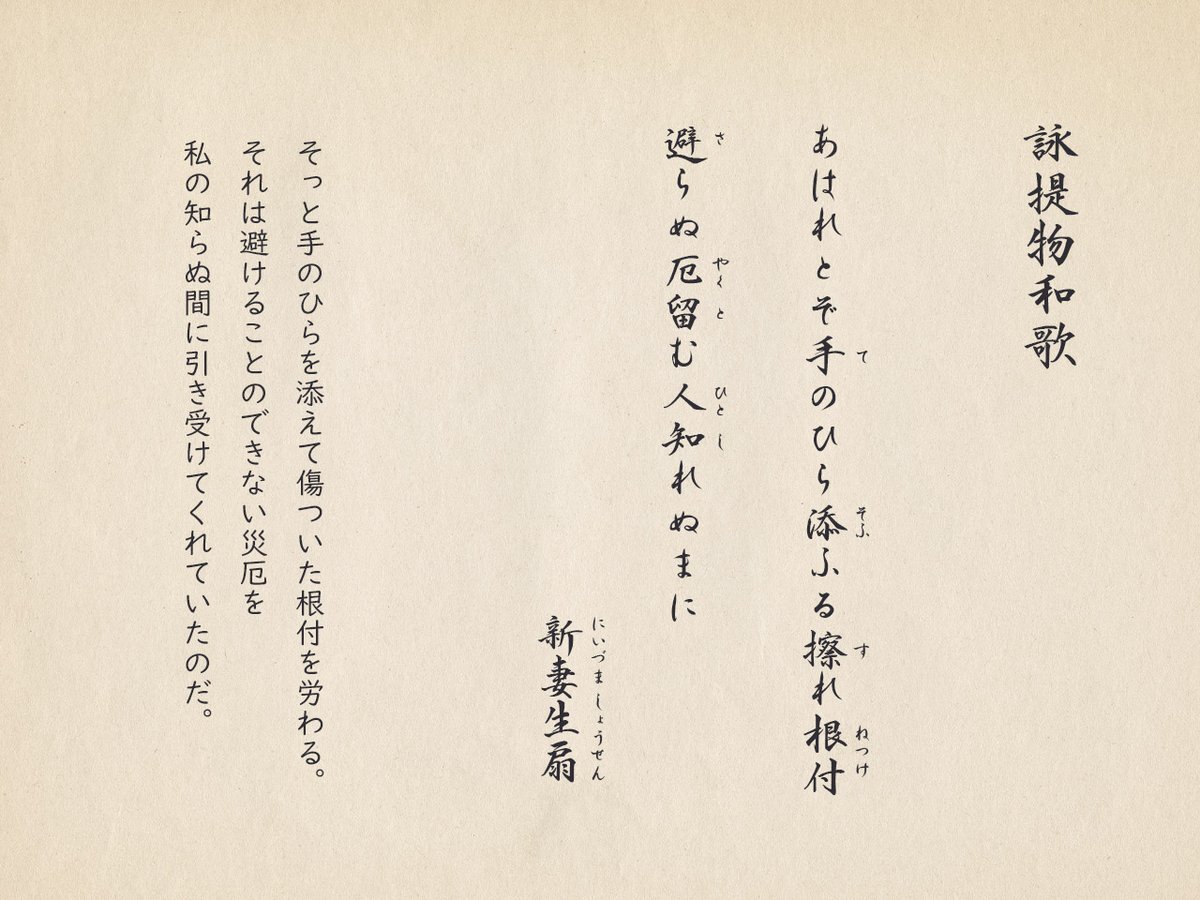 詠提物和歌
あはれとぞ手のひら添ふる擦れ根付
て そふ す ねつけ
避らぬ厄留む人知れぬまに
さ やくと ひとし
新妻生扇
にいづましょうせん
そっと手のひらを添えて傷ついた根付を労わる。
それは避けることのできない災厄を
私の知らぬ間に引き受けてくれていたのだ。